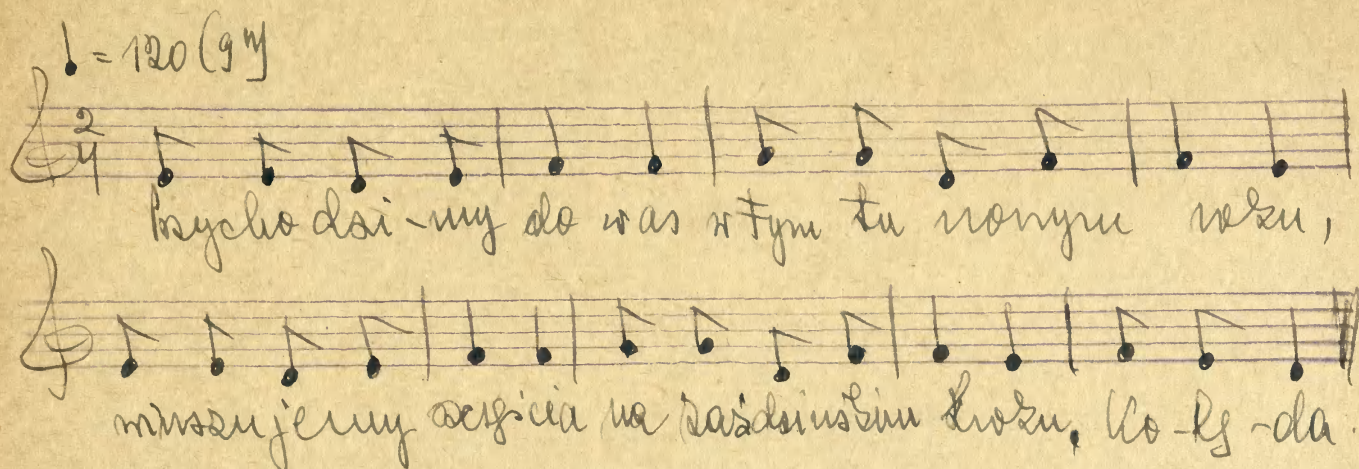 = 120 (9")
2
4
Przychodzi-my do was w tym tu nowym roku,
winszujemy szczęścia na każdziuskim kroku, Ko-lę-da.